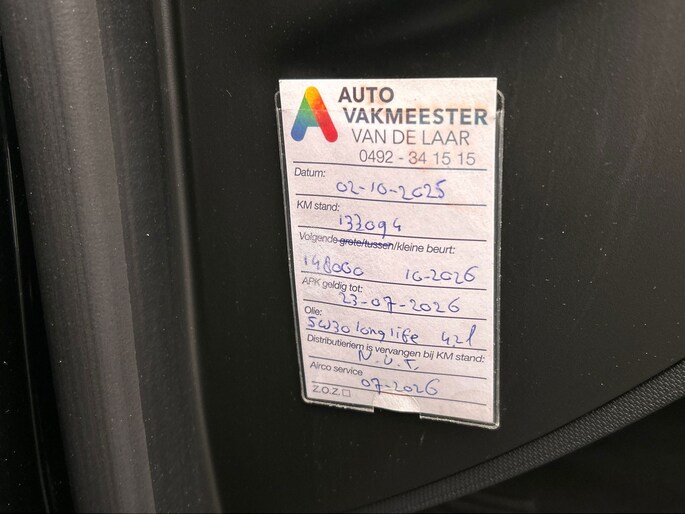 AUTO
VAKMEESTER
VAN DE LAAR
0492 - 34 15 15
Datum:
02-10-2025
KM stand:
133094
Volgende grote/tussen/kleine beurt:
148000 10-2026
APK geldig tot:
23-07-2026
Olie:
5W30 longlife 4,2l
Distributieriem is vervangen bij KM stand:
N.V.T.
Airco service
07-2026
Z.O.Z. □